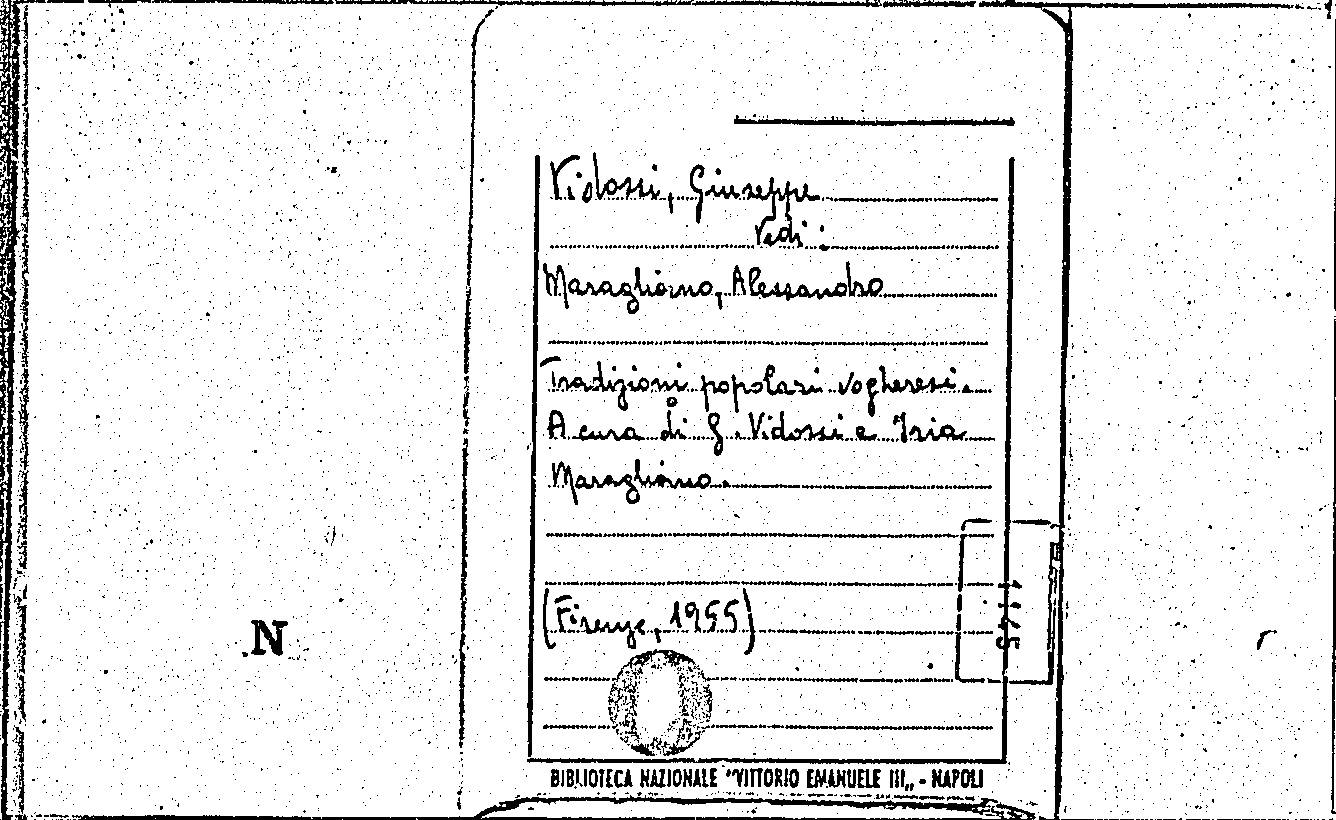 Vidossi, Giuseppe
Vedi:
Maragliano, Alessandro
Tradizioni popolari vogheresi.
A cura di G. Vidossi e Iria
Maragliano.
(Firenze, 1955)
N
BIBLIOTECA NAZIONALE "VITTORIO EMANUELE III„ - NAPOLI